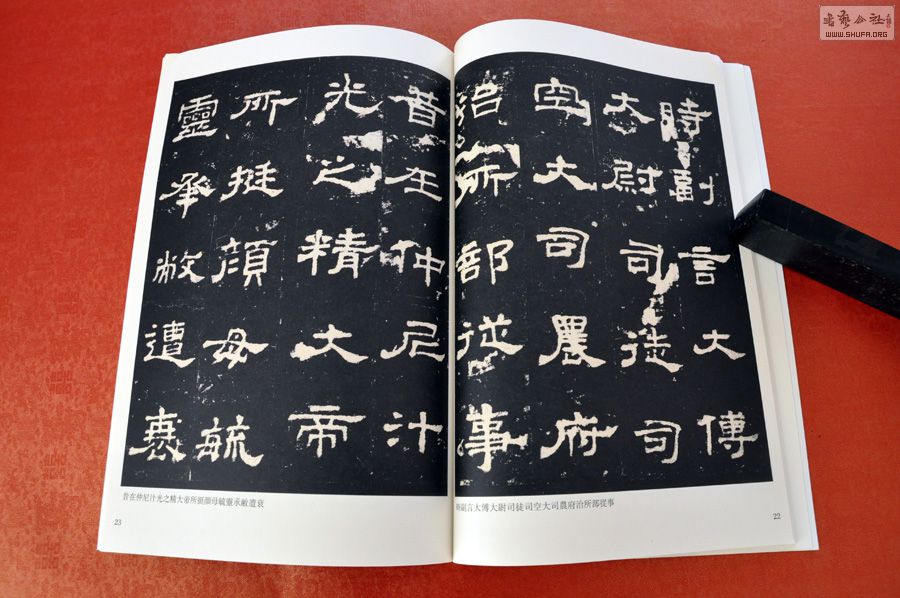 時副言大傅
大尉司徒司
空大司農府
治所部從事
時副言太傅大尉司徒司空大司農府治所部從事
22
昔在仲尼汁
光之精大帝
所挺顏母毓
靈承敝遭衰
昔在仲尼汁光之精大帝所挺顏母毓靈承敝遭衰
23
書藝公社
WWW.SHUFA.ORG